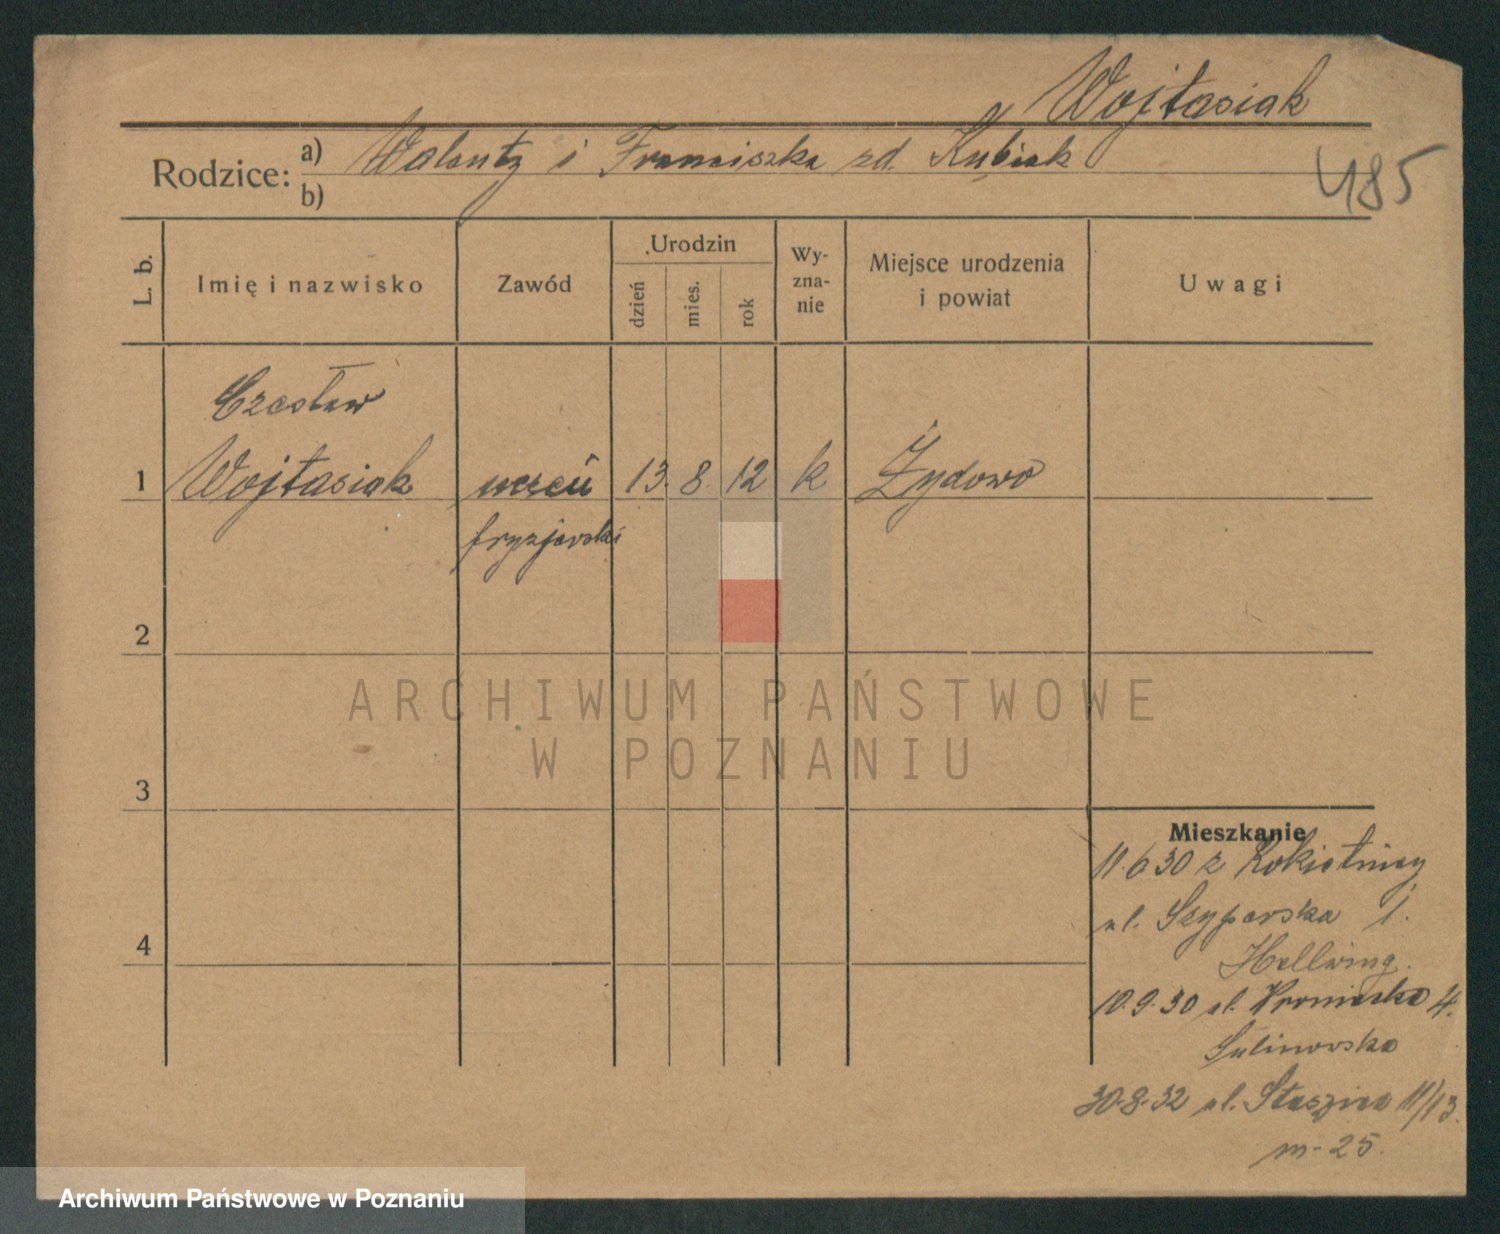 Wojtasiak
Rodzice: a) Walenty i Franciszka zd. Kubiak
b)
485
L. b.
Imię i nazwisko
Zawód
Urodzin
dzień
mies.
rok
Wy-
zna-
nie
Miejsce urodzenia
i powiat
Uwagi
Czesław
1 Wojtasiak uczeń 13. 8 12 k Żydowo
fryzjerski
2
3
4
Mieszkanie
11.6 30 z Rokietnicy
ul. Szyperska 1.
Hellwing.
10.9.30 ul. 4.
Sulinowska
30.8.32 ul. Staszica 11/13.
m-25.
ARCHIWUM PAŃSTWOWE
W POZNANIU
Archiwum Państwowe w Poznaniu